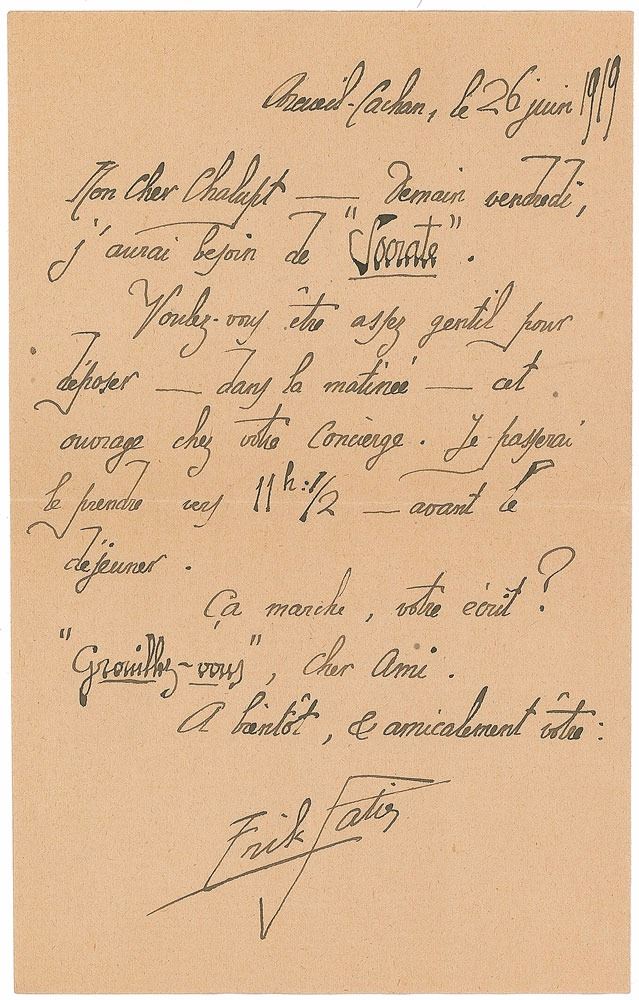 Arcueil-Cachan, le 26 juin 1919
Mon Cher Chalupt —— Demain vendredi,
j'aurai besoin de "Socrate".
Voulez-vous être assez gentil pour
déposer — dans la matinée — cet
ouvrage chez votre Concierge. Je passerai
le prendre vers 11h:1/2 — avant le
déjeuner.
Ça marche, votre écrit?
"Grouillez-vous", cher Ami.
A bientôt, & amicalement vôtre:
Erik Satie